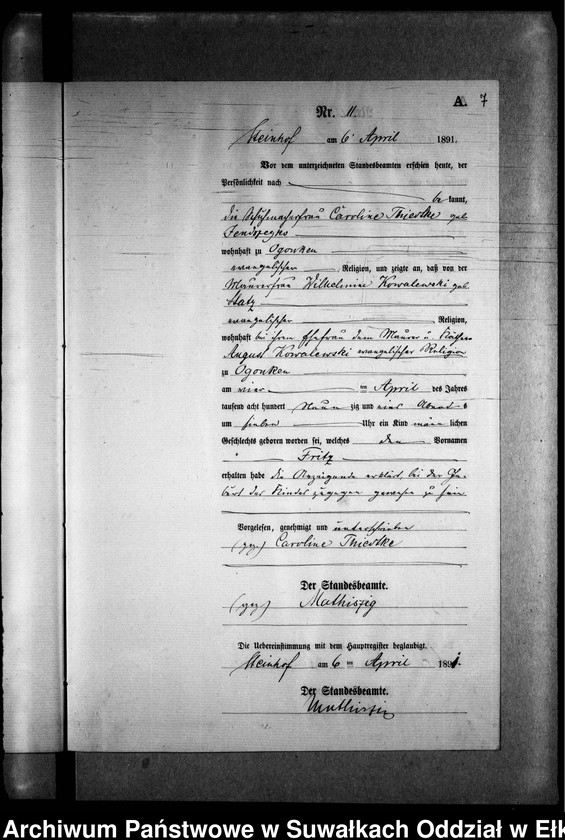 A. 7
Nr. 11.
Steinhof am 6 April 1891.
Vor dem unterzeichneten Standesbeamten erschien heute, der
Persönlichkeit nach
be kannt,
die Schuhmacherfrau Caroline Thiestke geb.
wohnhaft zu Ogonken
evangelischer Religion, und zeigte an, daß von der
Maurerfrau Wilhelmine Kowalewski geb.
evangelischer Religion,
wohnhaft bei ihrem Ehe dem Maurer u.
August Kowalewski evangelischer Religion
zu Ogonken
am vier ten April des Jahres
tausend acht hundert neun zig und eins Abends
um sieben Uhr ein Kind männ lichen
Geschlechts geboren worden sei, welches den Vornamen
Fritz
erhalten habe die Anzeigende erklärt, bei der Ge-
burt des Kindes zugegen gewesen zu sein
Vorgelesen, genehmigt und unterschrieben
(gez) Caroline Thiestke
Der Standesbeamte.
(gez) Mathiszig
Die Uebereinstimmung mit dem Hauptregister beglaubigt.
Steinhof am 6 ten April 1891.
Der Standesbeamte.
Mathiszig
Archiwum Państwowe w Suwałkach Oddział w Ełk